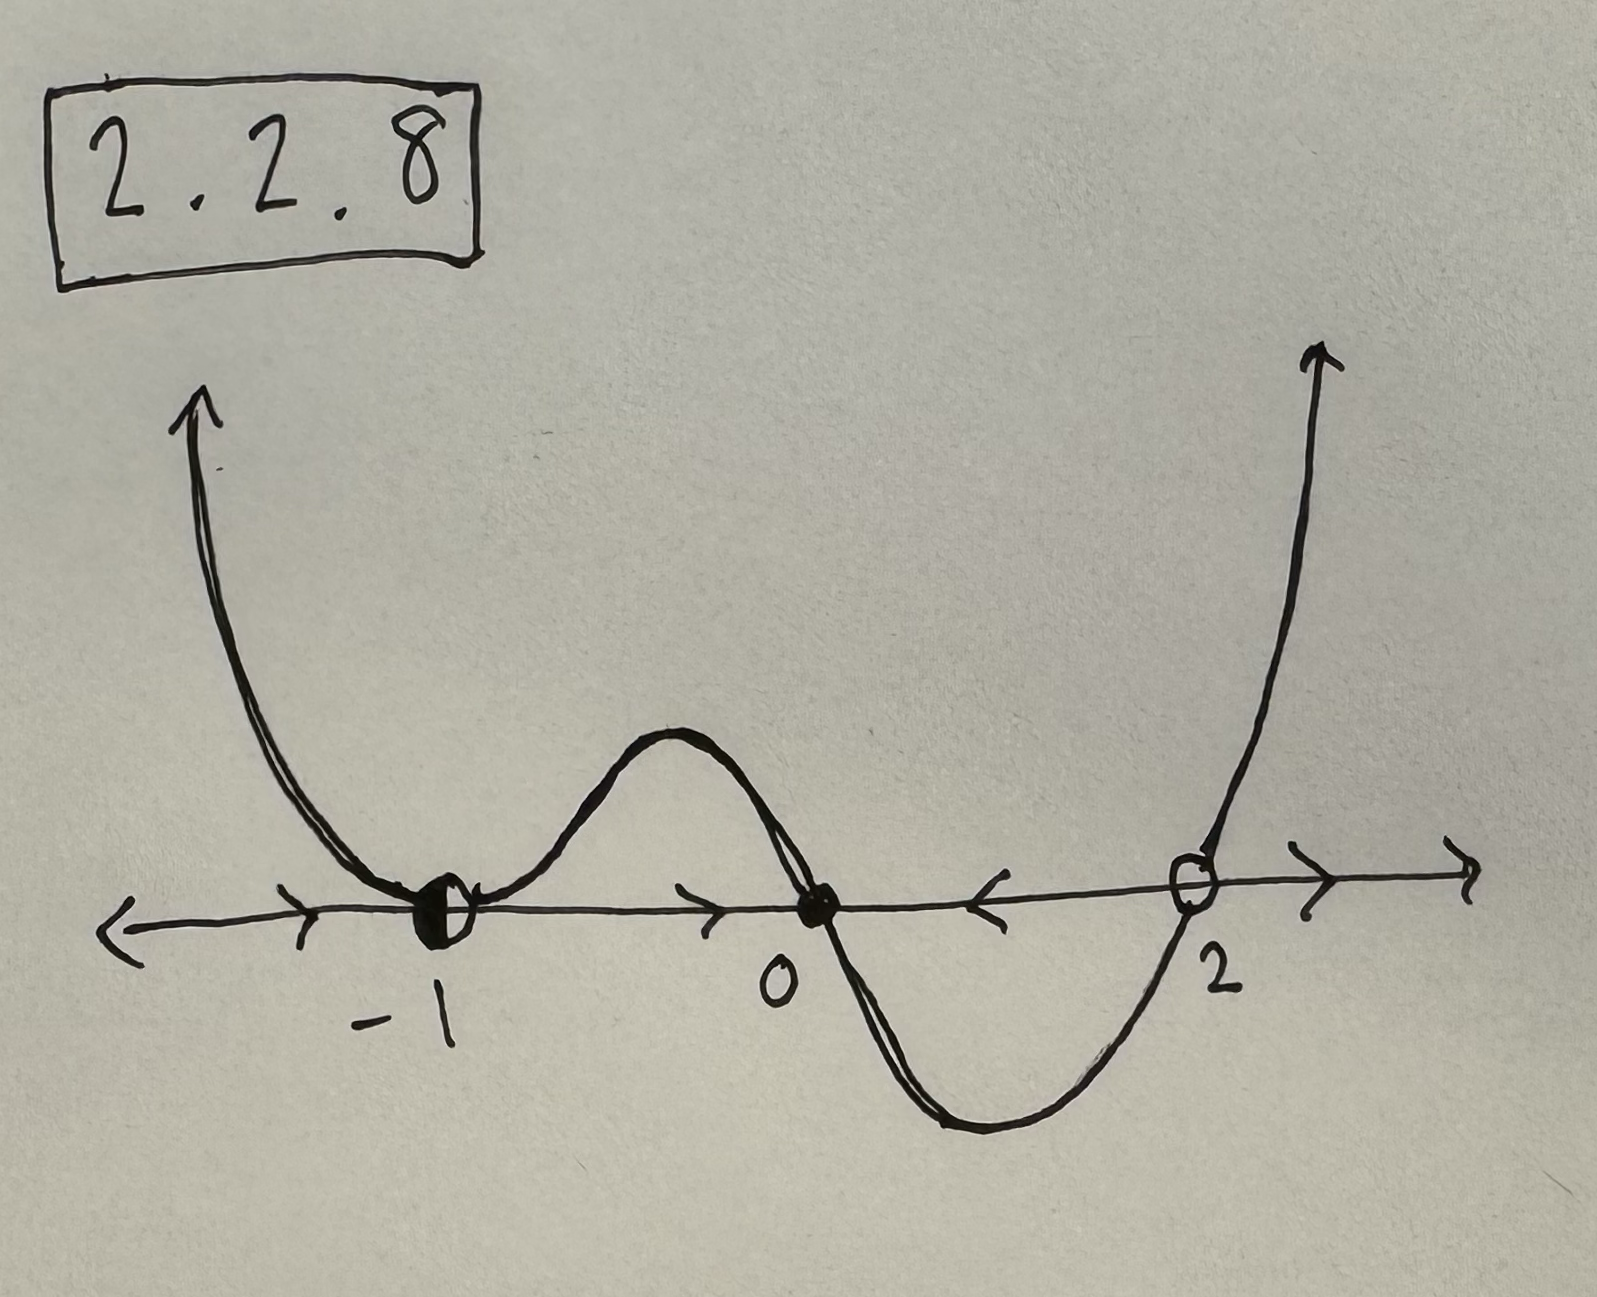 2.2.8
-1 0 2